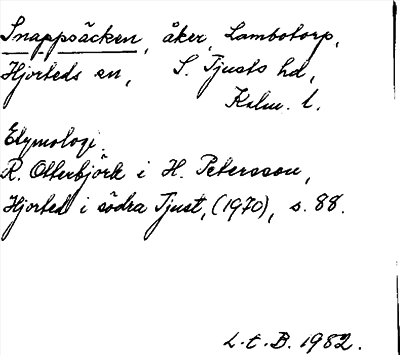 Snappsäcken, åker, Lambotorp,
Hjorteds sn, S. Tjusts hd,
Kalm. l.
Etymologi.
R. Otterbjörk i H. Petersson,
Hjorted i södra Tjust, (1970), s. 88.
L. t. B. 1982.